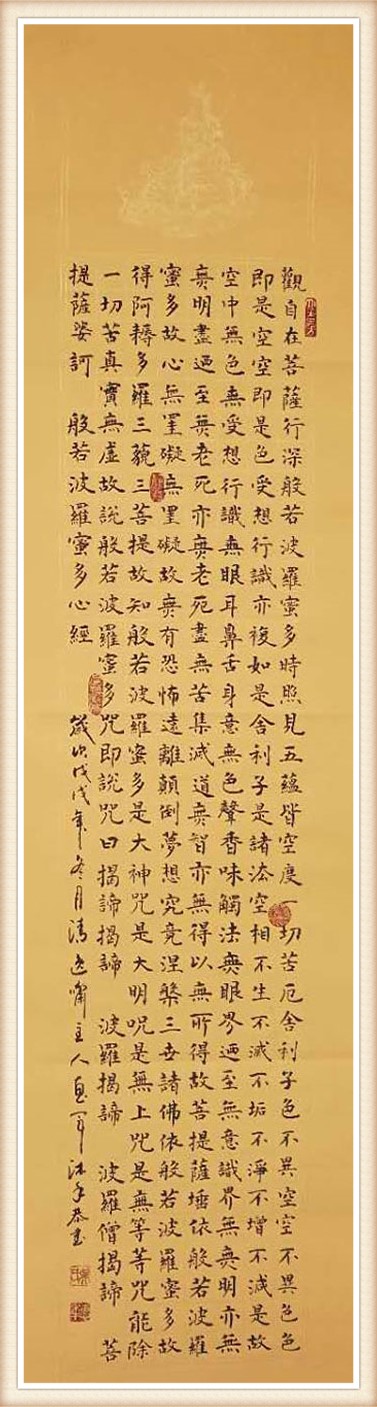 觀自在菩薩行深般若波羅蜜多時照見五蘊皆空度一切苦厄舍利子色不異空空不異色色
即是空空即是色受想行識亦復如是舍利子是諸法空相不生不滅不垢不淨不增不減是故
空中無色無受想行識無眼耳鼻舌身意無色聲香味觸法無眼界迺至無意識界無無明亦無
無明盡迺至無老死亦無老死盡無苦集滅道無智亦無得以無所得故菩提薩埵依般若波羅
蜜多故心無罣礙無罣礙故無有恐怖遠離顛倒夢想究竟涅槃三世諸佛依般若波羅蜜多故
得阿耨多羅三藐三菩提故知般若波羅蜜多是大神咒是大明咒是無上咒是無等等咒能除
一切苦真實無虛故說般若波羅蜜多咒即說咒曰揭諦揭諦 波羅揭諦 波羅僧揭諦 菩
提薩婆訶 般若波羅蜜多心經
歲次戊戌年冬月清逸嘯主人沐手恭書